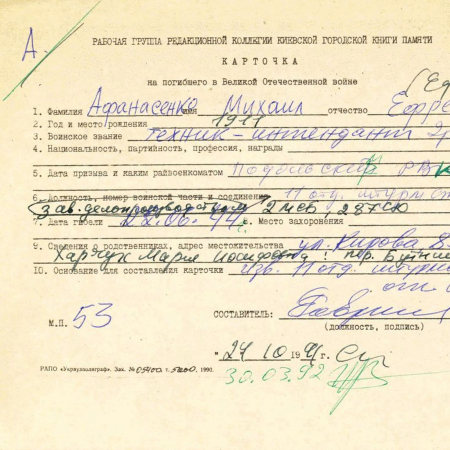 А.
РАБОЧАЯ ГРУППА РЕДАКЦИОННОЙ КОЛЛЕГИИ КИЕВСКОЙ ГОРОДСКОЙ КНИГИ ПАМЯТИ
КАРТОЧКА
на погибшего в Великой Отечественной войне
1. Фамилия Афанасенко имя Михаил отчество Ефре
2. Год и место рождения 1911
3. Воинское звание техник-интендант
4. Национальность, партийность, профессия, награды
5. Дата призыва и каким райвоенкоматом Подольский РВК
6. Должность, номер воинской части и соединения 11 отд. штурм
зав. делопроизводством 2 МСБ, 287 СД
7. Дата гибели 22.06.44г. 8. Место захоронения
9. Сведения о родственниках, адрес местожительства ул. Кирова 8
Харчук Мария Иосифовна, пер.
10. Основание для составления карточки изв. 11 отд. штурм
СОСТАВИТЕЛЬ:
(должность, подпись)
М.П. 53
"24" 10 199 г.
30.03.92
РАПО «Укрвузполиграф». Зак. № т. 1990.